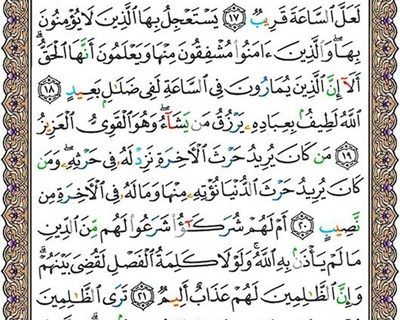 لَعَلَّ ٱلسَّاعَةَ قَرِيبٌ ١٧ يَسْتَعْجِلُ بِهَا ٱلَّذِينَ لَا يُؤْمِنُونَ
بِهَا ۖ وَٱلَّذِينَ ءَامَنُوا۟ مُشْفِقُونَ مِنْهَا وَيَعْلَمُونَ أَنَّهَا ٱلْحَقُّ ۗ
أَلَآ إِنَّ ٱلَّذِينَ يُمَارُونَ فِى ٱلسَّاعَةِ لَفِى ضَلَـٰلٍۭ بَعِيدٍ ١٨
ٱللَّهُ لَطِيفٌۢ بِعِبَادِهِۦ يَرْزُقُ مَن يَشَآءُ ۖ وَهُوَ ٱلْقَوِىُّ ٱلْعَزِيزُ
١٩ مَن كَانَ يُرِيدُ حَرْثَ ٱلْـَٔاخِرَةِ نَزِدْ لَهُۥ فِى حَرْثِهِۦ ۖ وَمَن
كَانَ يُرِيدُ حَرْثَ ٱلدُّنْيَا نُؤْتِهِۦ مِنْهَا وَمَا لَهُۥ فِى ٱلْـَٔاخِرَةِ مِن
نَّصِيبٍ ٢٠ أَمْ لَهُمْ شُرَكَـٰٓؤُا۟ شَرَعُوا۟ لَهُم مِّنَ ٱلدِّينِ
مَا لَمْ يَأْذَنۢ بِهِ ٱللَّهُ ۚ وَلَوْلَا كَلِمَةُ ٱلْفَصْلِ لَقُضِىَ بَيْنَهُمْ ۗ
وَإِنَّ ٱلظَّـٰلِمِينَ لَهُمْ عَذَابٌ أَلِيمٌ ٢١ تَرَى ٱلظَّـٰلِمِينَ